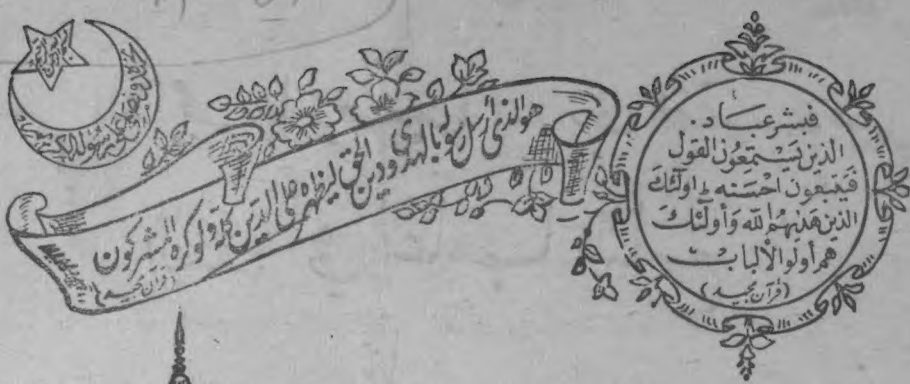 فبشر عباد.
الذين يستمعون القول
فيتبعون احسنه اولئك
الذين هديهم الله وأولئك
هم أولوا الألباب
(قرآن مجید)
هو الذي أرسل رسوله بالهدى ودين الحق ليظهره على الدين كله ولو كره المشركون